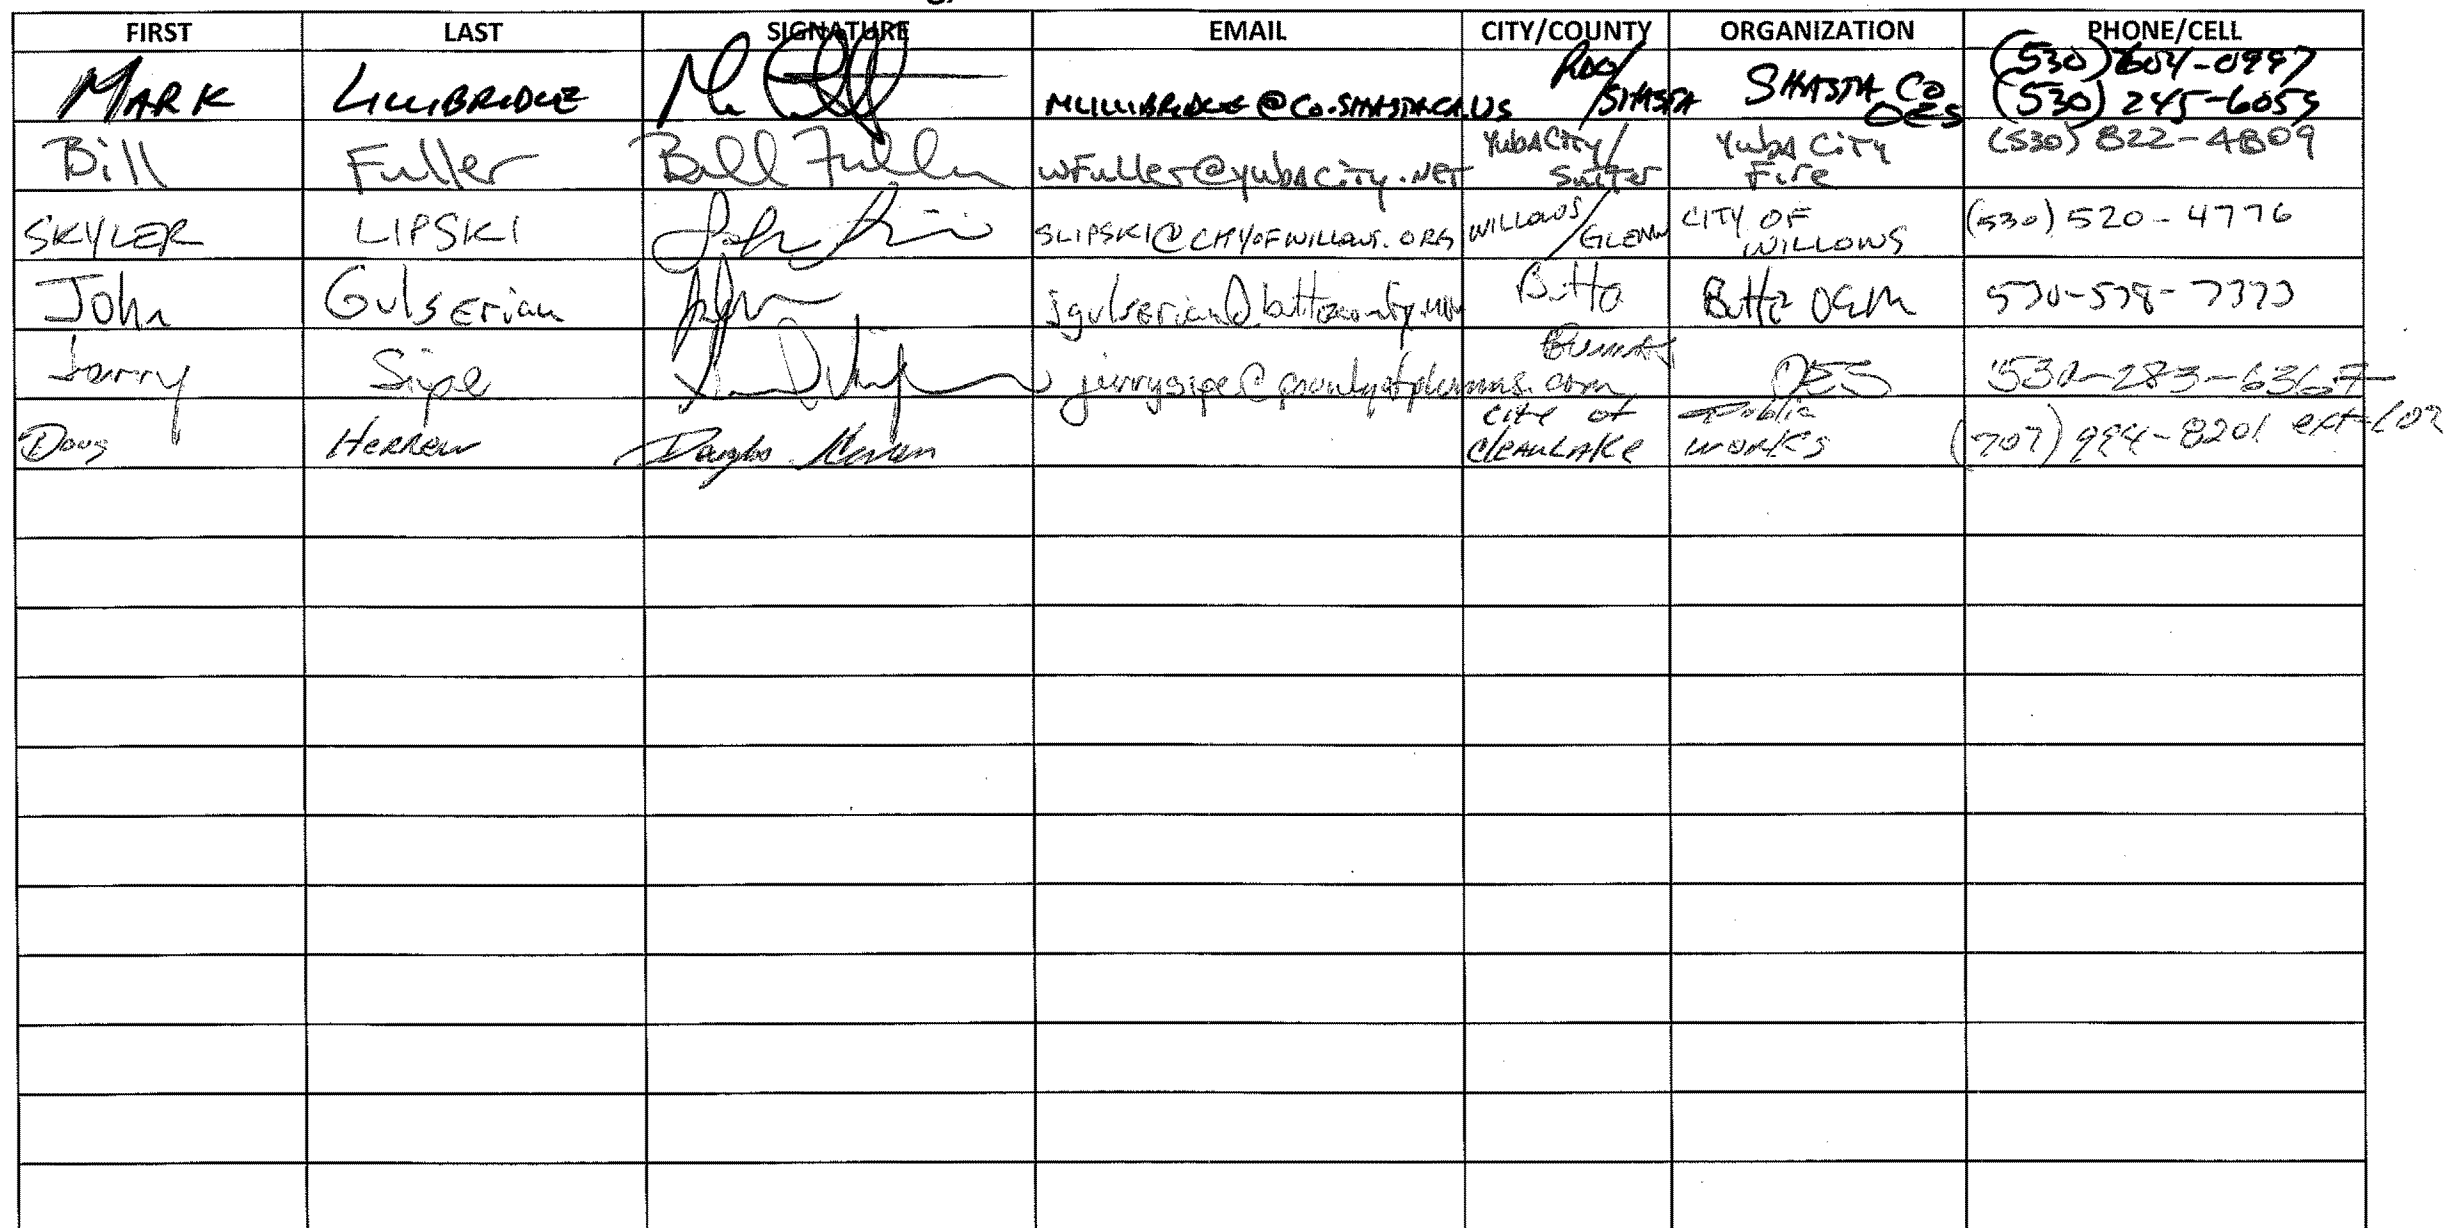 FIRST LAST SIGNATURE EMAIL CITY/COUNTY ORGANIZATION PHONE/CELL
MARK LILLIBRIDGE MLILLIBRIDGE@CO.SHASTA.CA.US RDG/SHASTA SHASTA CO OES (530) 604-0997
(530) 245-6055
Bill Fuller Bill Fuller WFuller@yubacity.NET Yuba City/Sutter Yuba City Fire (530) 822-4809
SKYLER LIPSKI SLIPSKI@CITYOFWILLOWS.ORG WILLOWS/GLENN CITY OF WILLOWS (530) 520-4776
John Gulserian jgulserian@buttecounty.net Butte Butte OEM 530-538-7373
Jerry Sipe jerrysipe@countyofplumas.com OES 530-283-6367
Doug Herren city of Clearlake Public works (707) 994-8201 ext 102